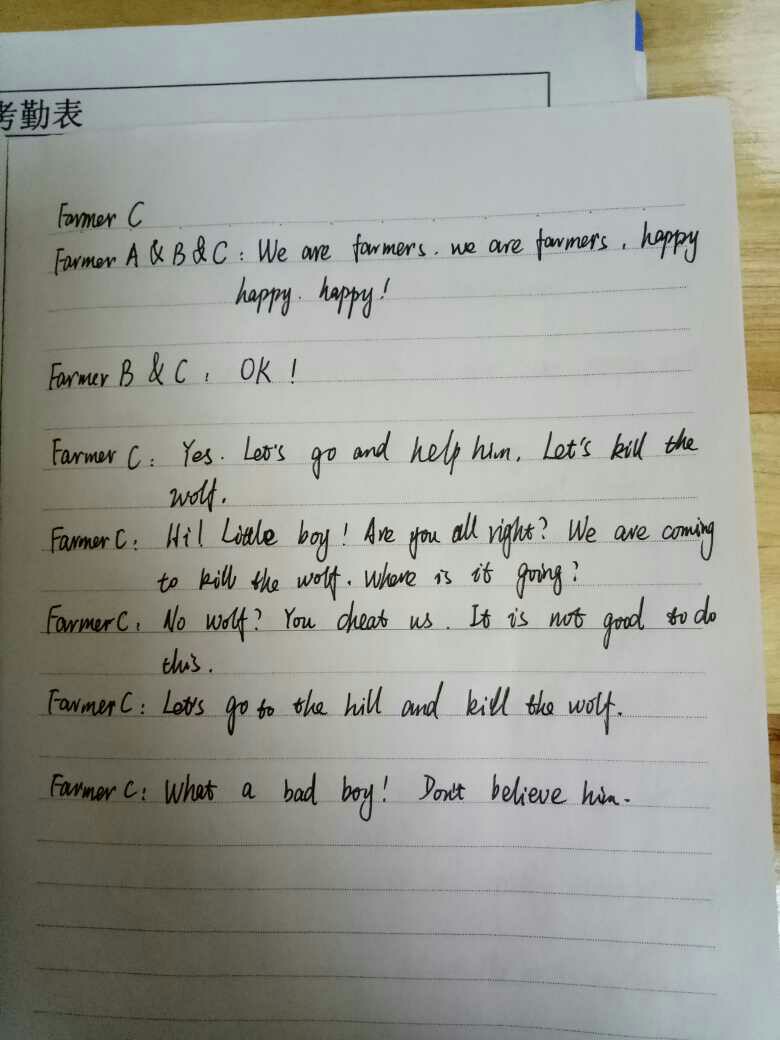 考勤表
Farmer C
Farmer A & B & C : We are farmers. we are farmers, happy
happy. happy!
Farmer B & C : OK !
Farmer C : Yes. Let's go and help him. Let's kill the
wolf.
Farmer C : Hi! Little boy! Are you all right? We are coming
to kill the wolf. Where is it going?
Farmer C : No wolf? You cheat us. It is not good to do
this.
Farmer C : Let's go to the hill and kill the wolf.
Farmer C : What a bad boy! Don't believe him.